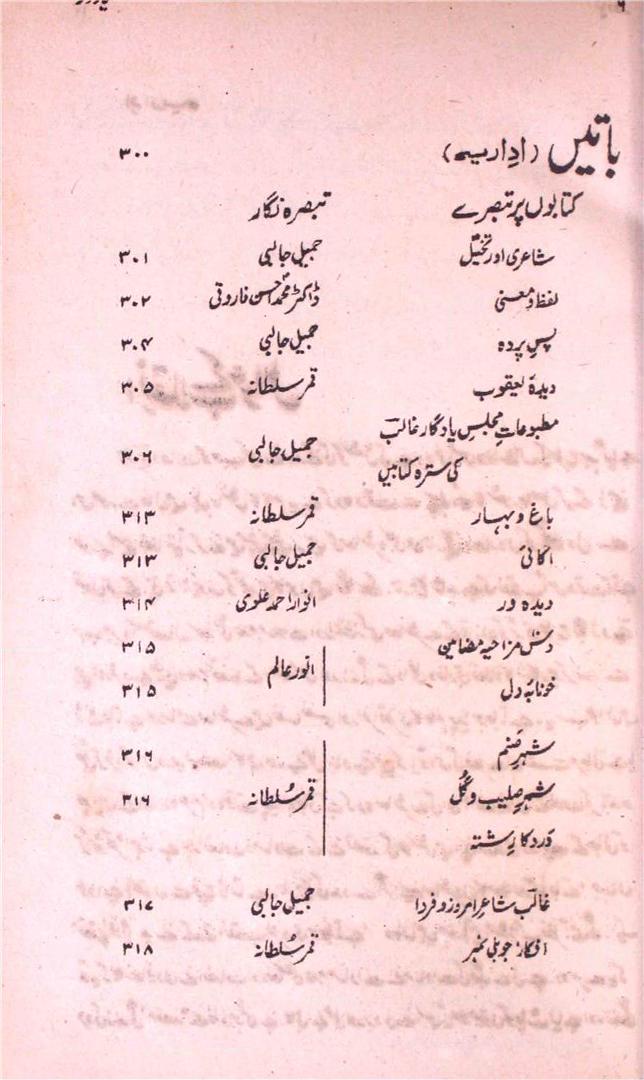 ۶
باتیں (اداریہ) ۳۰۰
کتابوں پر تبصرے تبصرہ نگار
شاعری اور تخیّل جمیل جالبی ۳۰۱
لفظ و معنی ڈاکٹر محمد احسن فاروقی ۳۰۲
پسِ پردہ جمیل جالبی ۳۰۴
دیدۂ یعقوب قمر سلطانہ ۳۰۵
مطبوعاتِ مجلس یادگار غالب
کی سترہ کتابیں جمیل جالبی ۳۰۶
باغ و بہار قمر سلطانہ ۳۱۳
اکائی جمیل جالبی ۳۱۳
دیدہ ور انوار احمد علوی ۳۱۴
دس مزاحیہ مضامین ۳۱۵
انور عالم
خونابۂ دل ۳۱۵
شہرِ صنم ۳۱۶
شہرِ صلیب و گُل قمر سُلطانہ ۳۱۶
درد کا رشتہ
غالب شاعرِ امروز و فردا جمیل جالبی ۳۱۷
افکار: جوبلی نمبر قمر سُلطانہ ۳۱۸